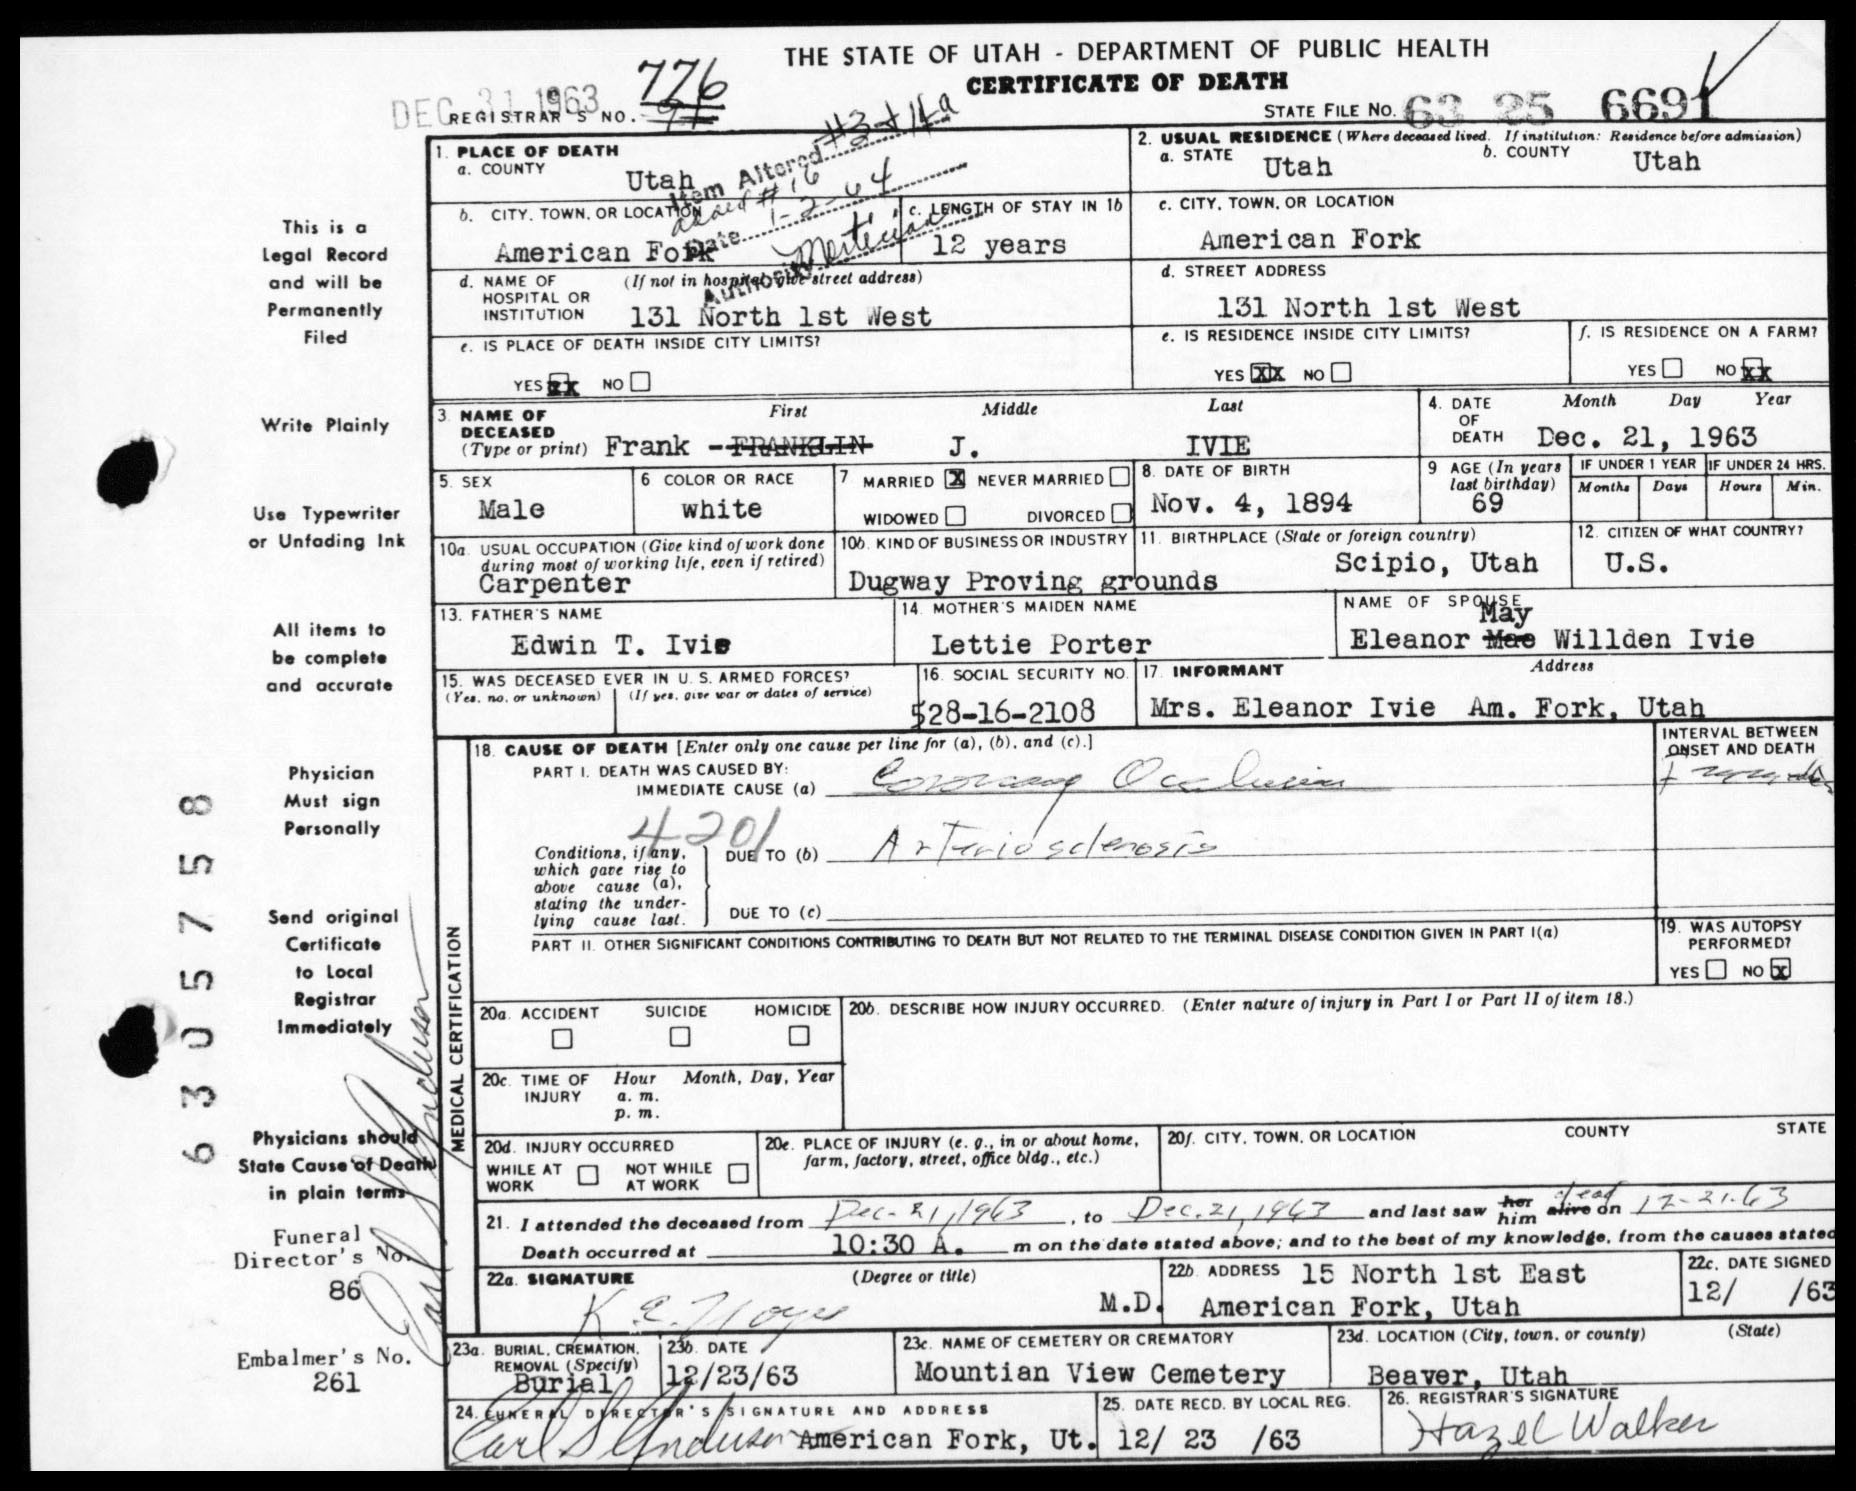 THE STATE OF UTAH - DEPARTMENT OF PUBLIC HEALTH
CERTIFICATE OF DEATH
DEC 31 1963
REGISTRAR'S NO. 776
STATE FILE NO. 63 25 6691
Item Altered #3 + 14a
added #16
Date 1-2-64
Authority Mortician
This is a
Legal Record
and will be
Permanently
Filed
Write Plainly
Use Typewriter
or Unfading Ink
All items to
be complete
and accurate
Physician
Must sign
Personally
Send original
Certificate
to Local
Registrar
Immediately
Physicians should
State Cause of Death
in plain terms
Funeral
Director's No.
86
Embalmer's No.
261
6 3 0 5 7 5 8
Earl S Anderson
1. PLACE OF DEATH
a. COUNTY
Utah
2. USUAL RESIDENCE (Where deceased lived. If institution: Residence before admission)
a. STATE Utah
b. COUNTY Utah
b. CITY, TOWN, OR LOCATION
American Fork
c. LENGTH OF STAY IN 1b
12 years
c. CITY, TOWN, OR LOCATION
American Fork
d. NAME OF HOSPITAL OR INSTITUTION
(If not in hospital, give street address)
131 North 1st West
d. STREET ADDRESS
131 North 1st West
e. IS PLACE OF DEATH INSIDE CITY LIMITS?
YES XX NO
e. IS RESIDENCE INSIDE CITY LIMITS?
YES XX NO
f. IS RESIDENCE ON A FARM?
YES NO XX
3. NAME OF DECEASED
(Type or print)
First Middle Last
Frank -FRANKLIN- J. IVIE
4. DATE OF DEATH
Month Day Year
Dec. 21, 1963
5. SEX
Male
6 COLOR OR RACE
white
7 MARRIED X NEVER MARRIED
WIDOWED DIVORCED
8. DATE OF BIRTH
Nov. 4, 1894
9 AGE (In years last birthday)
69
IF UNDER 1 YEAR
Months Days
IF UNDER 24 HRS.
Hours Min.
10a. USUAL OCCUPATION (Give kind of work done during most of working life, even if retired)
Carpenter
10b. KIND OF BUSINESS OR INDUSTRY
Dugway Proving grounds
11. BIRTHPLACE (State or foreign country)
Scipio, Utah
12. CITIZEN OF WHAT COUNTRY?
U.S.
13. FATHER'S NAME
Edwin T. Ivie
14. MOTHER'S MAIDEN NAME
Lettie Porter
NAME OF SPOUSE
May
Eleanor Mae Willden Ivie
15. WAS DECEASED EVER IN U. S. ARMED FORCES?
(Yes, no, or unknown) (If yes, give war or dates of service)
16. SOCIAL SECURITY NO.
528-16-2108
17. INFORMANT Address
Mrs. Eleanor Ivie Am. Fork, Utah
MEDICAL CERTIFICATION
18. CAUSE OF DEATH [Enter only one cause per line for (a), (b), and (c).]
PART I. DEATH WAS CAUSED BY:
IMMEDIATE CAUSE (a) Coronary Occlusion
INTERVAL BETWEEN ONSET AND DEATH
4201
Conditions, if any, which gave rise to above cause (a), stating the underlying cause last.
DUE TO (b) Arteriosclerosis
DUE TO (c)
PART II. OTHER SIGNIFICANT CONDITIONS CONTRIBUTING TO DEATH BUT NOT RELATED TO THE TERMINAL DISEASE CONDITION GIVEN IN PART I(a)
19. WAS AUTOPSY PERFORMED?
YES NO X
20a. ACCIDENT SUICIDE HOMICIDE
20b. DESCRIBE HOW INJURY OCCURRED. (Enter nature of injury in Part I or Part II of item 18.)
20c. TIME OF INJURY
Hour Month, Day, Year
a. m.
p. m.
20d. INJURY OCCURRED
WHILE AT WORK NOT WHILE AT WORK
20e. PLACE OF INJURY (e. g., in or about home, farm, factory, street, office bldg., etc.)
20f. CITY, TOWN, OR LOCATION COUNTY STATE
21. I attended the deceased from Dec. 21, 1963, to Dec. 21, 1963 and last saw her him alive dead on 12-21-63
Death occurred at 10:30 A. m on the date stated above; and to the best of my knowledge, from the causes stated
22a. SIGNATURE (Degree or title)
K. E. Noyes M.D.
22b. ADDRESS 15 North 1st East
American Fork, Utah
22c. DATE SIGNED
12/ /63
23a. BURIAL, CREMATION, REMOVAL (Specify)
Burial
23b. DATE
12/23/63
23c. NAME OF CEMETERY OR CREMATORY
Mountian View Cemetery
23d. LOCATION (City, town, or county) (State)
Beaver, Utah
24. FUNERAL DIRECTOR'S SIGNATURE AND ADDRESS
Earl S Anderson American Fork, Ut.
25. DATE RECD. BY LOCAL REG.
12/ 23 /63
26. REGISTRAR'S SIGNATURE
Hazel Walker